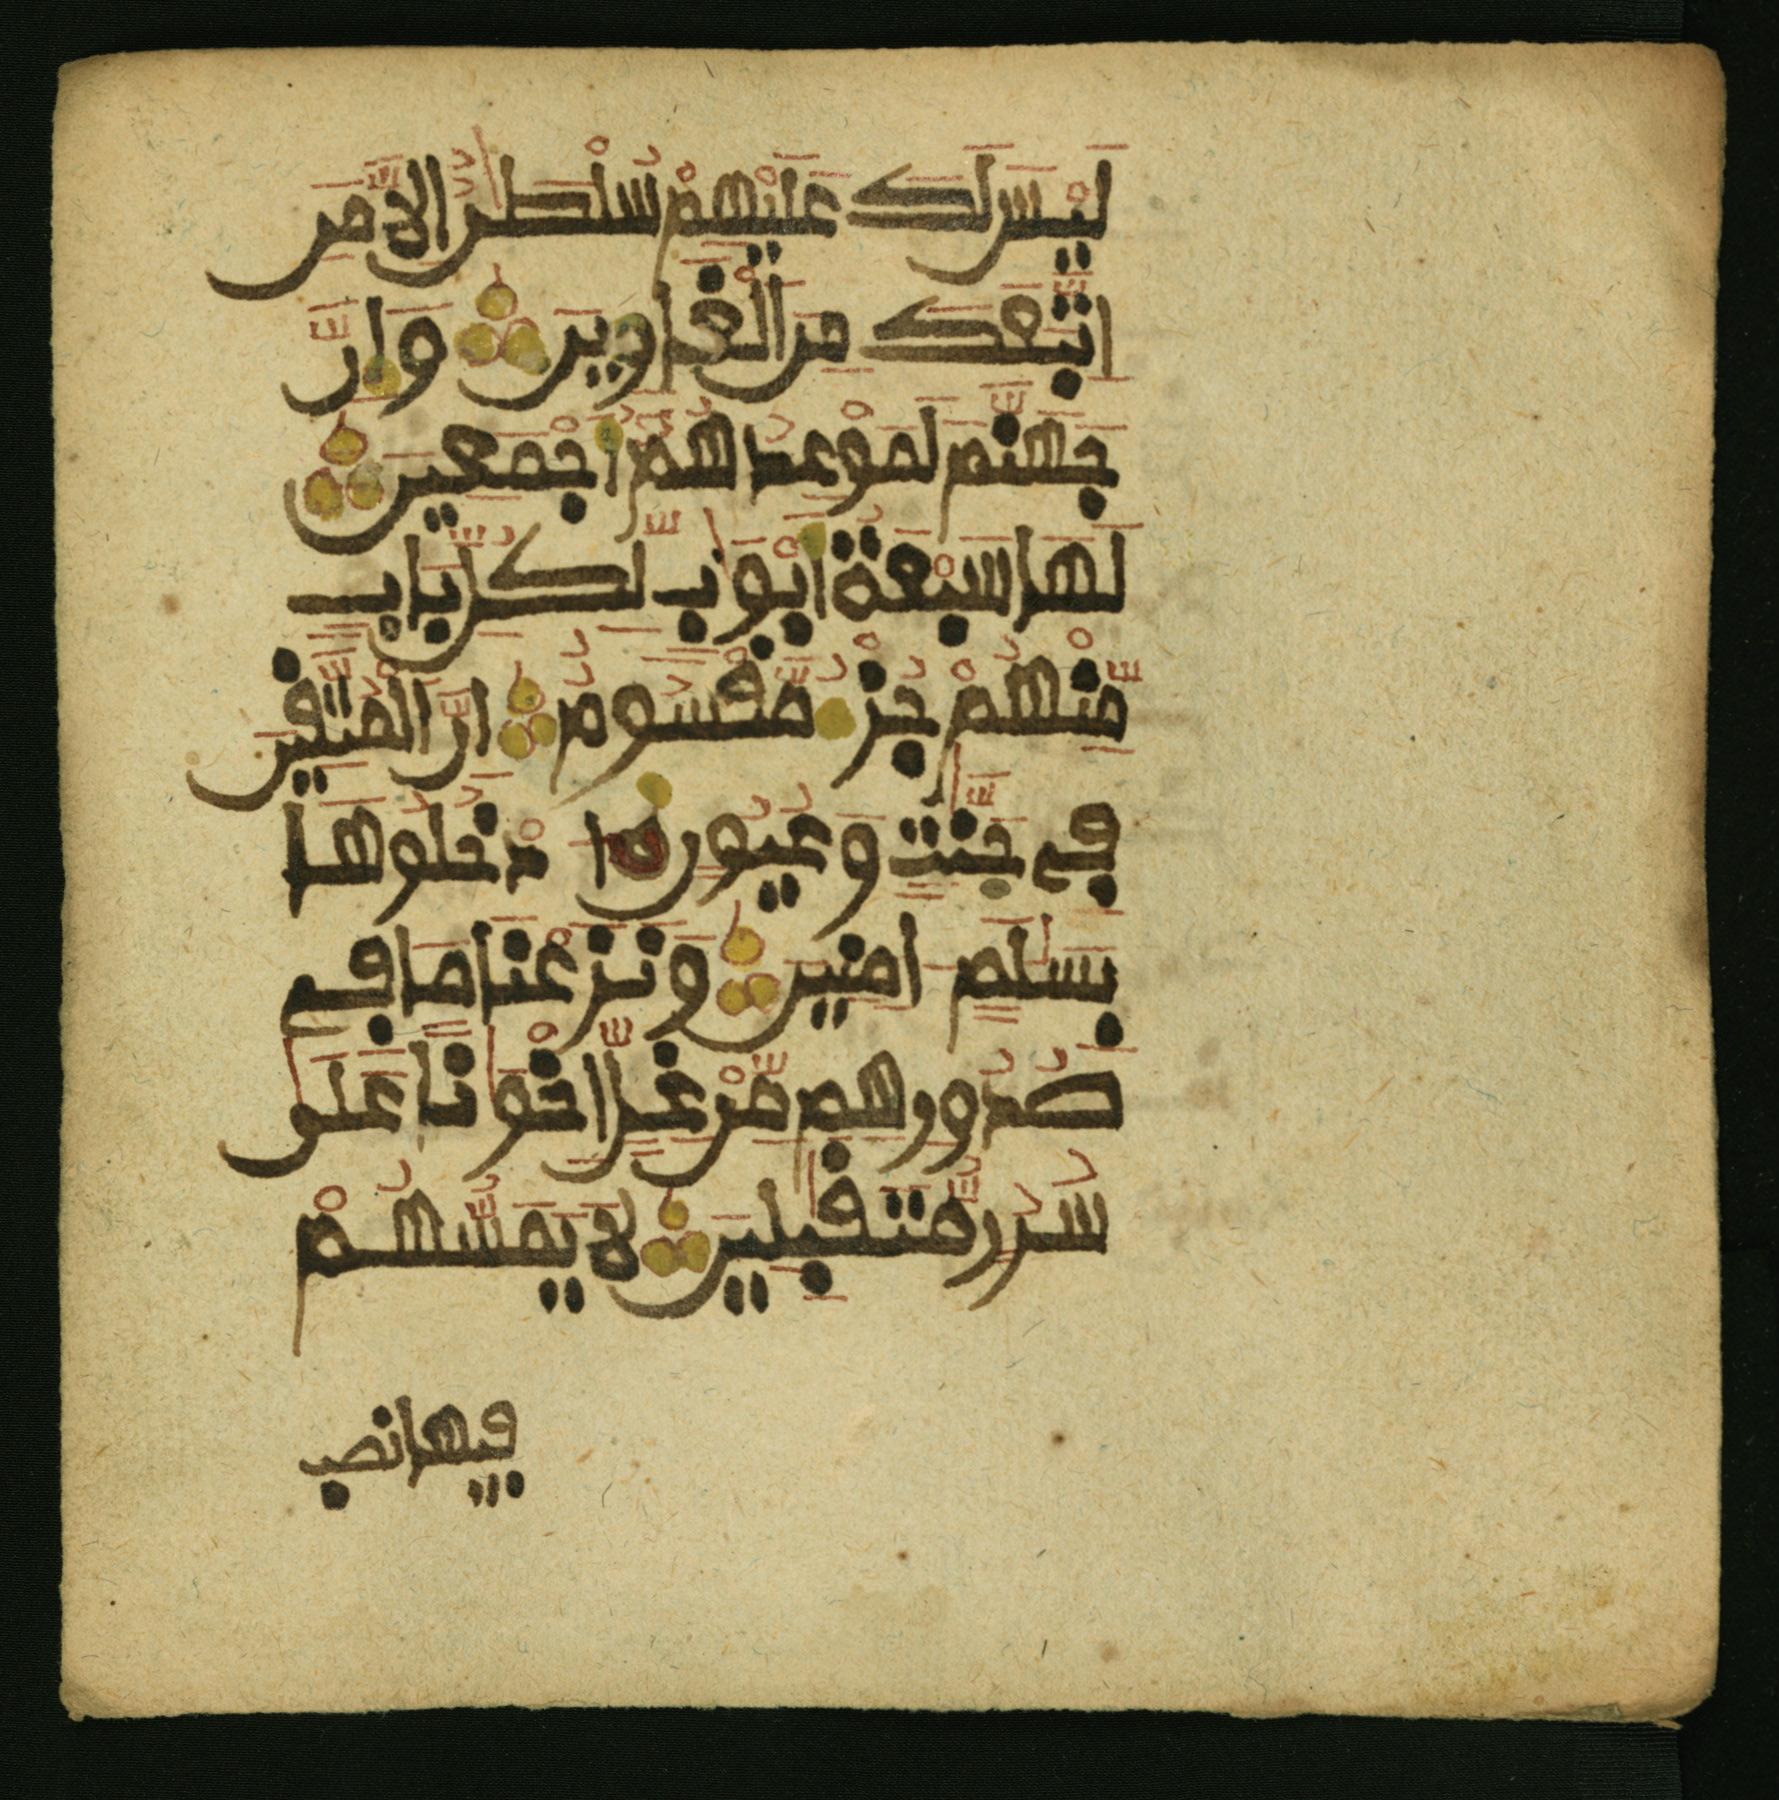 لَيْسَ لَكَ عَلَيْهِمْ سُلْطَٰنٌ اِلَّا مَنِ
اِتَّبَعَكَ مِنَ الْغَاوِينَ وَإِنَّ
جَهَنَّمَ لَمَوْعِدُهُمُ أَجْمَعِينَ
لَهَا سَبْعَةُ أَبْوَٰبٍ لِّكُلِّ بَابٍ
مِّنْهُمْ جُزْءٌ مَّقْسُومٌ اِنَّ الْمُتَّقِينَ
فِے جَنَّٰتٍ وَعُيُونٍ ا۟دْخُلُوهَا
بِسَلَٰمٍ اٰمِنِينَ وَنَزَعْنَا مَا فِے
صُدُورِهِم مِّنْ غِلٍّ اِخْوَٰنًا عَلَىٰ
سُرُرٍ مُّتَقَٰبِلِينَ لَا يَمَسُّهُمْ
فيها نصب